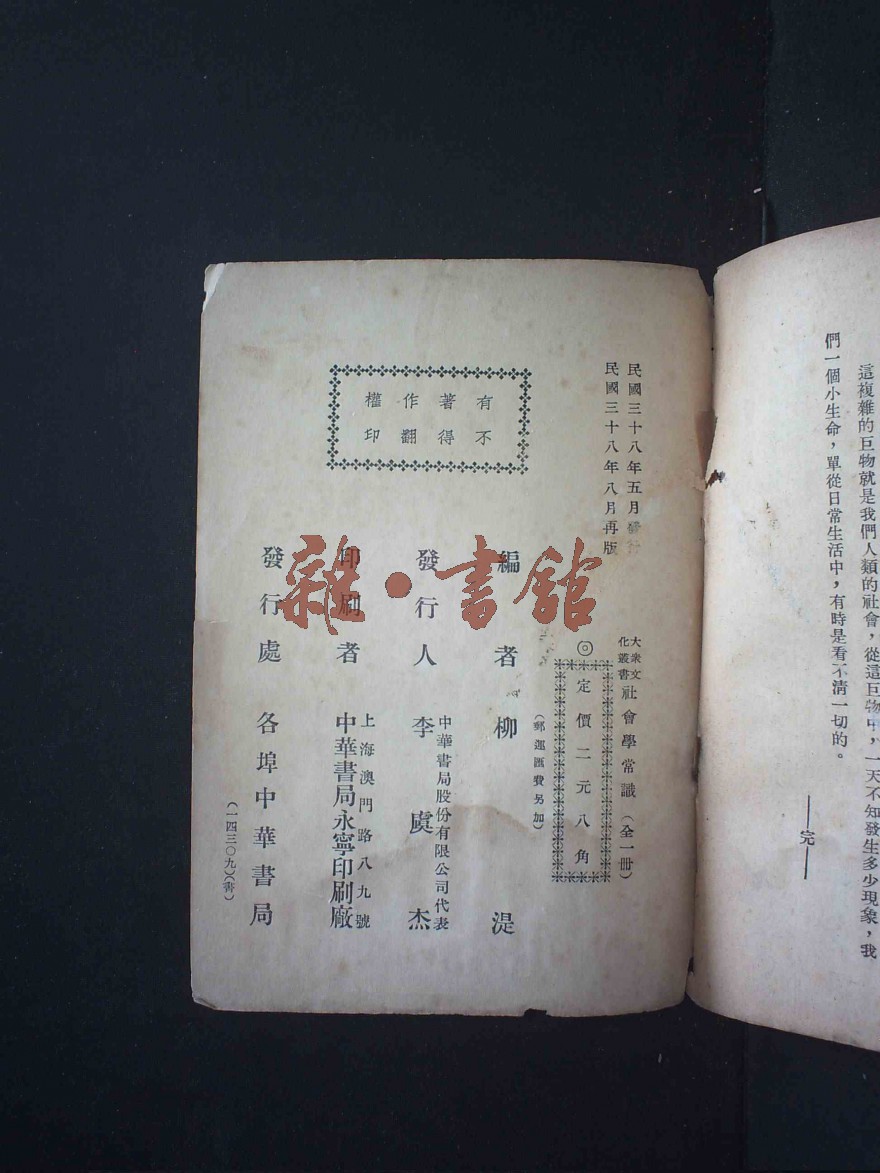 這複雜的巨物就是我們人類的社會，從這巨物中，一天不知發生多少現象，我
們一個小生命，單從日常生活中，有時是看不清一切的。
——完——
民國三十八年五月發行
民國三十八年八月再版
大衆文化叢書 社會學常識（全一冊）
◎定價二元八角
（郵運匯費另加）
有著作權
不得翻印
編者 柳湜
發行人 中華書局股份有限公司代表
李虞杰
印刷者 上海澳門路八九號
中華書局永寧印刷廠
發行處 各埠中華書局
（一四三〇九）（書）
雜·書館